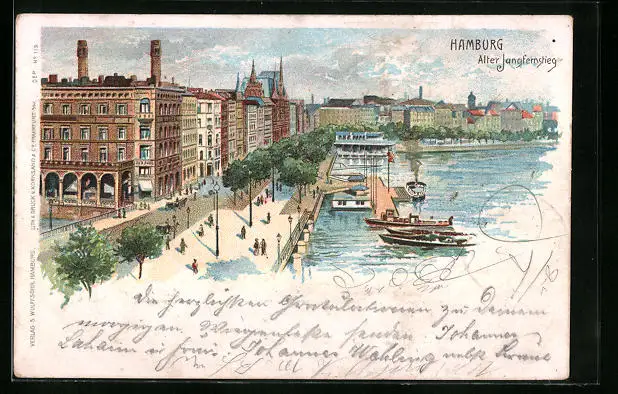 HAMBURG
Alter Jungfernstieg
DEP. No 113
LITH. & DRUCK v. KORNSAND & Co FRANKFURT a/M.
VERLAG S. WOLFFSOHN, HAMBURG.
Die herzlichsten Gratulationen zu Deinem
morgigen Wiegenfeste senden Johannes
u. Frau, Johannes nebst